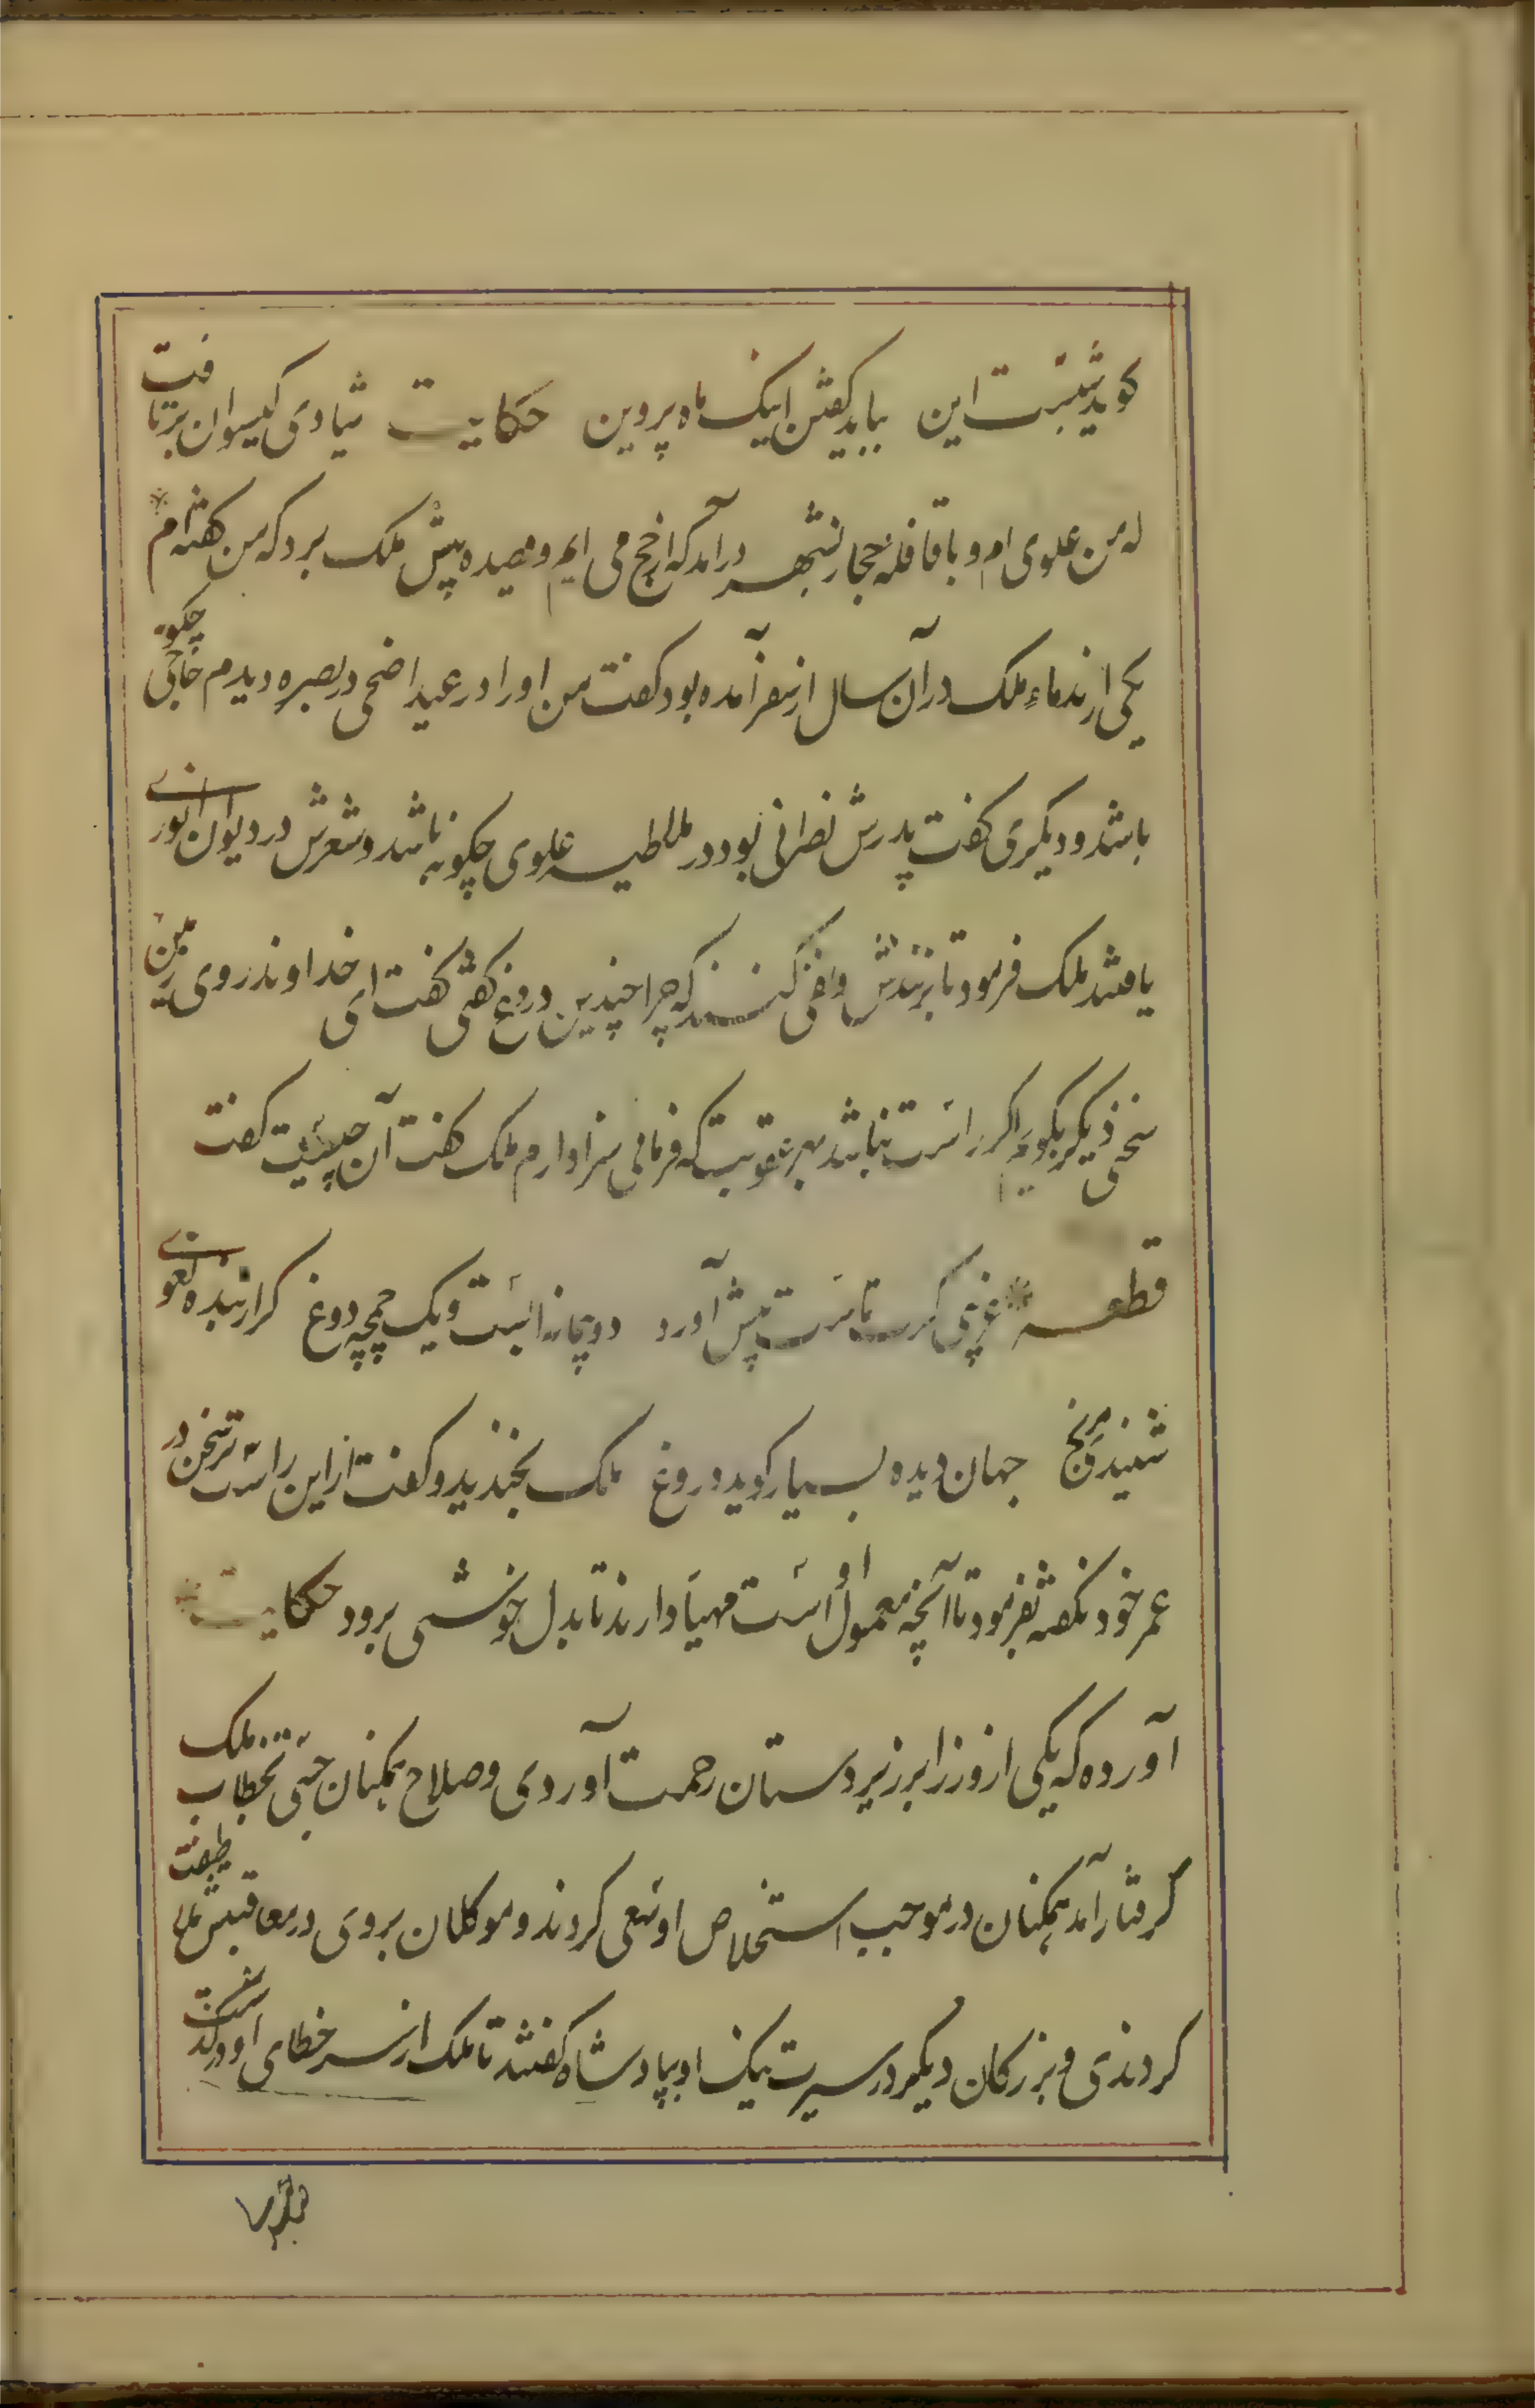 کوید شبست این بباید کفتن اینک ماه پروین حکایت شیادی کیسوان برتافت
که من علوی ام و با قافله حجاز بشهر درآمد که از حج می ایم و قصیده پیش ملک برد که من کفته ام
یکی از ندماء ملک در آن سال از سفر آمده بود کفت من او را در عید اضحی در بصره دیدم حاجی چکونه
باشد و دیکری کفت پدرش نصرانی بود در ملاطیه علوی چکونه باشد و شعرش در دیوان انوری
یافتند ملک فرمود تا بزنندش و نفی کنند که چرا چندین دروغ کفتی کفت ای خداوند روی زمین
سخنی دیکر بکویم اکر راست نباشد بهر عقوبت که فرمایی سزاوارم ملک کفت آن چیست کفت
قطعه غریبی کرت ماست پیش آورد دو پیمانه ابست و یک چمچه دوغ کر از بنده لغوی
شنیدی مرنج جهان دیده بسیار کوید دروغ ملک بخندید و کفت از این راست تر سخن در
عمر خود نکفته بفرمود تا آنچه معمول او است مهیا دارند تا بدل خوشی برود حکایت
آورده که یکی از وزرا بر زیردستان رحمت آوردی و صلاح همکنان جستی بخطاب ملک
گرفتار آمد همکنان در موجب استخلاص او سعی کردند و موکلان بر وی در معاقبتش ملاطفت
کردندی و بزرکان دیکر در سیرت نیک او بپادشاه کفتند تا ملک از سر خطای او درکذشت